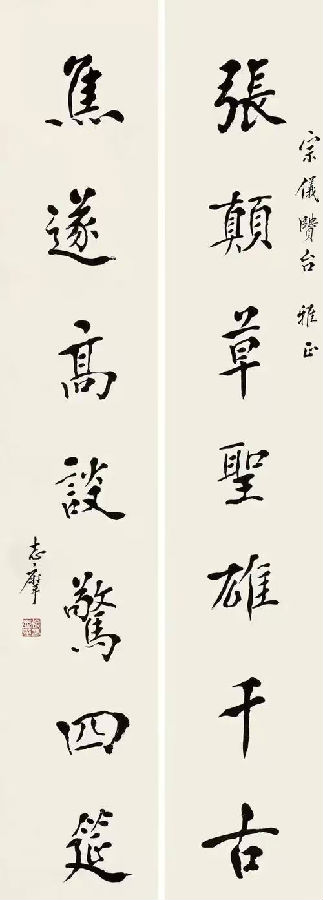 宗儀贤台 雅正
張顛草聖雄千古
焦遂高談驚四筵
志摩